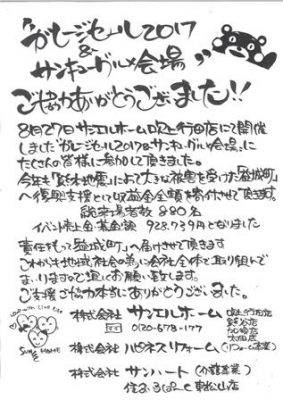 "ガレージセール2017
&
サンキューグルメ会場"
ご協力ありがとうございました!!
8月27日サンエルホーム吹上行田店にて開催
しました"ガレージセール2017&サンキューグルメ会場"に
たくさんの皆様に参加して頂きました。
今年も"熊本地震"によって大きな被害を受けた"益城町"
へ復興支援として収益金全額を寄付させて頂きます。
総来場者数 880名
イベント売上金・募金額 928,739円となりました
責任持って"益城町"へ届けさせて頂きます
これからも地域社会の為に会社全体で取り組んで
まいりますので宜しくお願い致します。
ご支援ご協力本当にありがとうございました。
株式会社 サンエルホーム 吹上行田店
熊谷店
太田店
0120-678-177
株式会社 ハピネスリフォーム (リフォーム事業)
株式会社 サンハート (介護事業)
東松山店
SUN L HOME